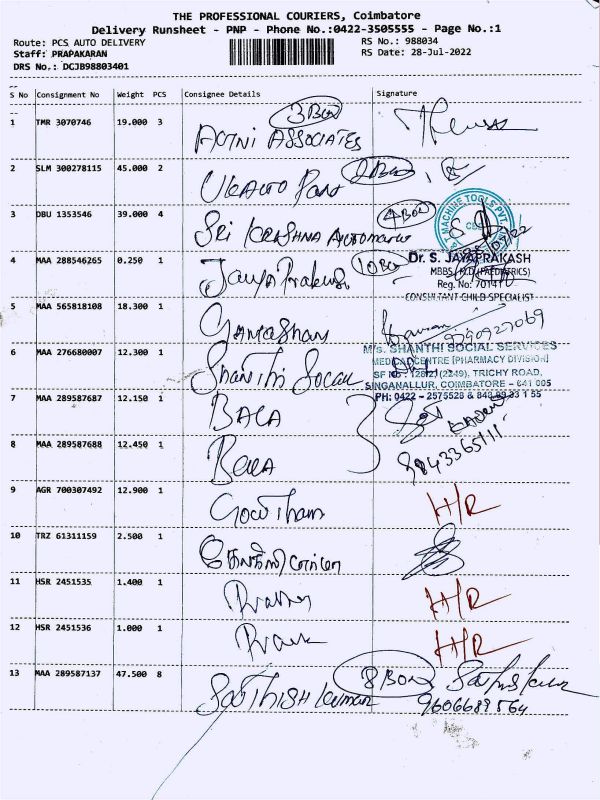 THE PROFESSIONAL COURIERS, Coimbatore
Delivery Runsheet - PNP - Phone No.:0422-3505555 - Page No.:1
Route: PCS AUTO DELIVERY RS No.: 988034
Staff: PRAPAKARAN RS Date: 28-Jul-2022
DRS No.: DCJB98803401
S No Consignment No Weight PCS Consignee Details Signature
1 TMR 3070746 19.000 3 3 Box
ASSOCIATES
2 SLM 300278115 45.000 2 2 Box
3 DBU 1353546 39.000 4 SRI KRISHNA 4 Box
MACHINE TOOLS PVT.
4 MAA 288546265 0.250 1 Jaya Prakash 1 Box
Dr. S. JAYAPRAKASH
MBBS., M.D., (PAEDIATRICS)
Reg. No: 70141
CONSULTANT CHILD SPECIALIST
5 MAA 565818108 18.300 1
6 MAA 276680007 12.300 1 Shanthi Social
M/s. SHANTHI SOCIAL SERVICES
MEDICAL CENTRE [PHARMACY DIVISION]
TRICHY ROAD,
SINGANALLUR, COIMBATORE - 641 005
PH: 0422 - 2575528 &
7 MAA 289587687 12.150 1 BALA
8 MAA 289587688 12.450 1 BALA
9843365111
9 AGR 700307492 12.900 1 Gowtham H/R
10 TRZ 61311159 2.500 1
11 HSR 2451535 1.400 1 H/R
12 HSR 2451536 1.000 1 H/R
13 MAA 289587137 47.500 8 8 Box
Sathish kumar 9606689564